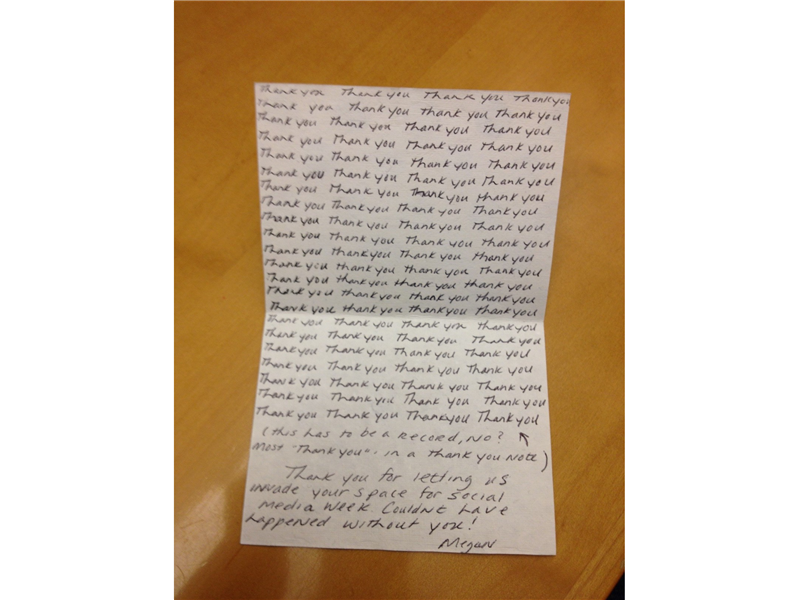 Thank you Thank you Thank you Thank you
Thank you Thank you Thank you Thank you
Thank you Thank you Thank you Thank you
Thank you Thank you Thank you Thank you
Thank you Thank you thank you Thank you
Thank you Thank you Thank you Thank you
Thank you Thank you Thank you thank you
Thank you Thank you Thank you Thank you
Thank you Thank you Thank you Thank you
Thank you Thank you Thank you Thank you
Thank you Thank you Thank you thank you
Thank you thank you thank you Thank you
Thank you thank you thank you thank you
Thank you thank you thank you thank you
Thank you thank you thank you Thank you
Thank you Thank you Thank you thank you
Thank you Thank you Thank you Thank you
Thank you Thank you Thank you Thank you
Thank you Thank you thank you Thank you
Thank you Thank you Thank you Thank you
Thank you Thank you Thank you Thank you
Thank you Thank you Thank you Thank you
(this has to be a record, no?
most "Thank you". in a thank you note)
Thank you for letting us
invade your space for social
media week. Couldnt have
happened without you!
Megan